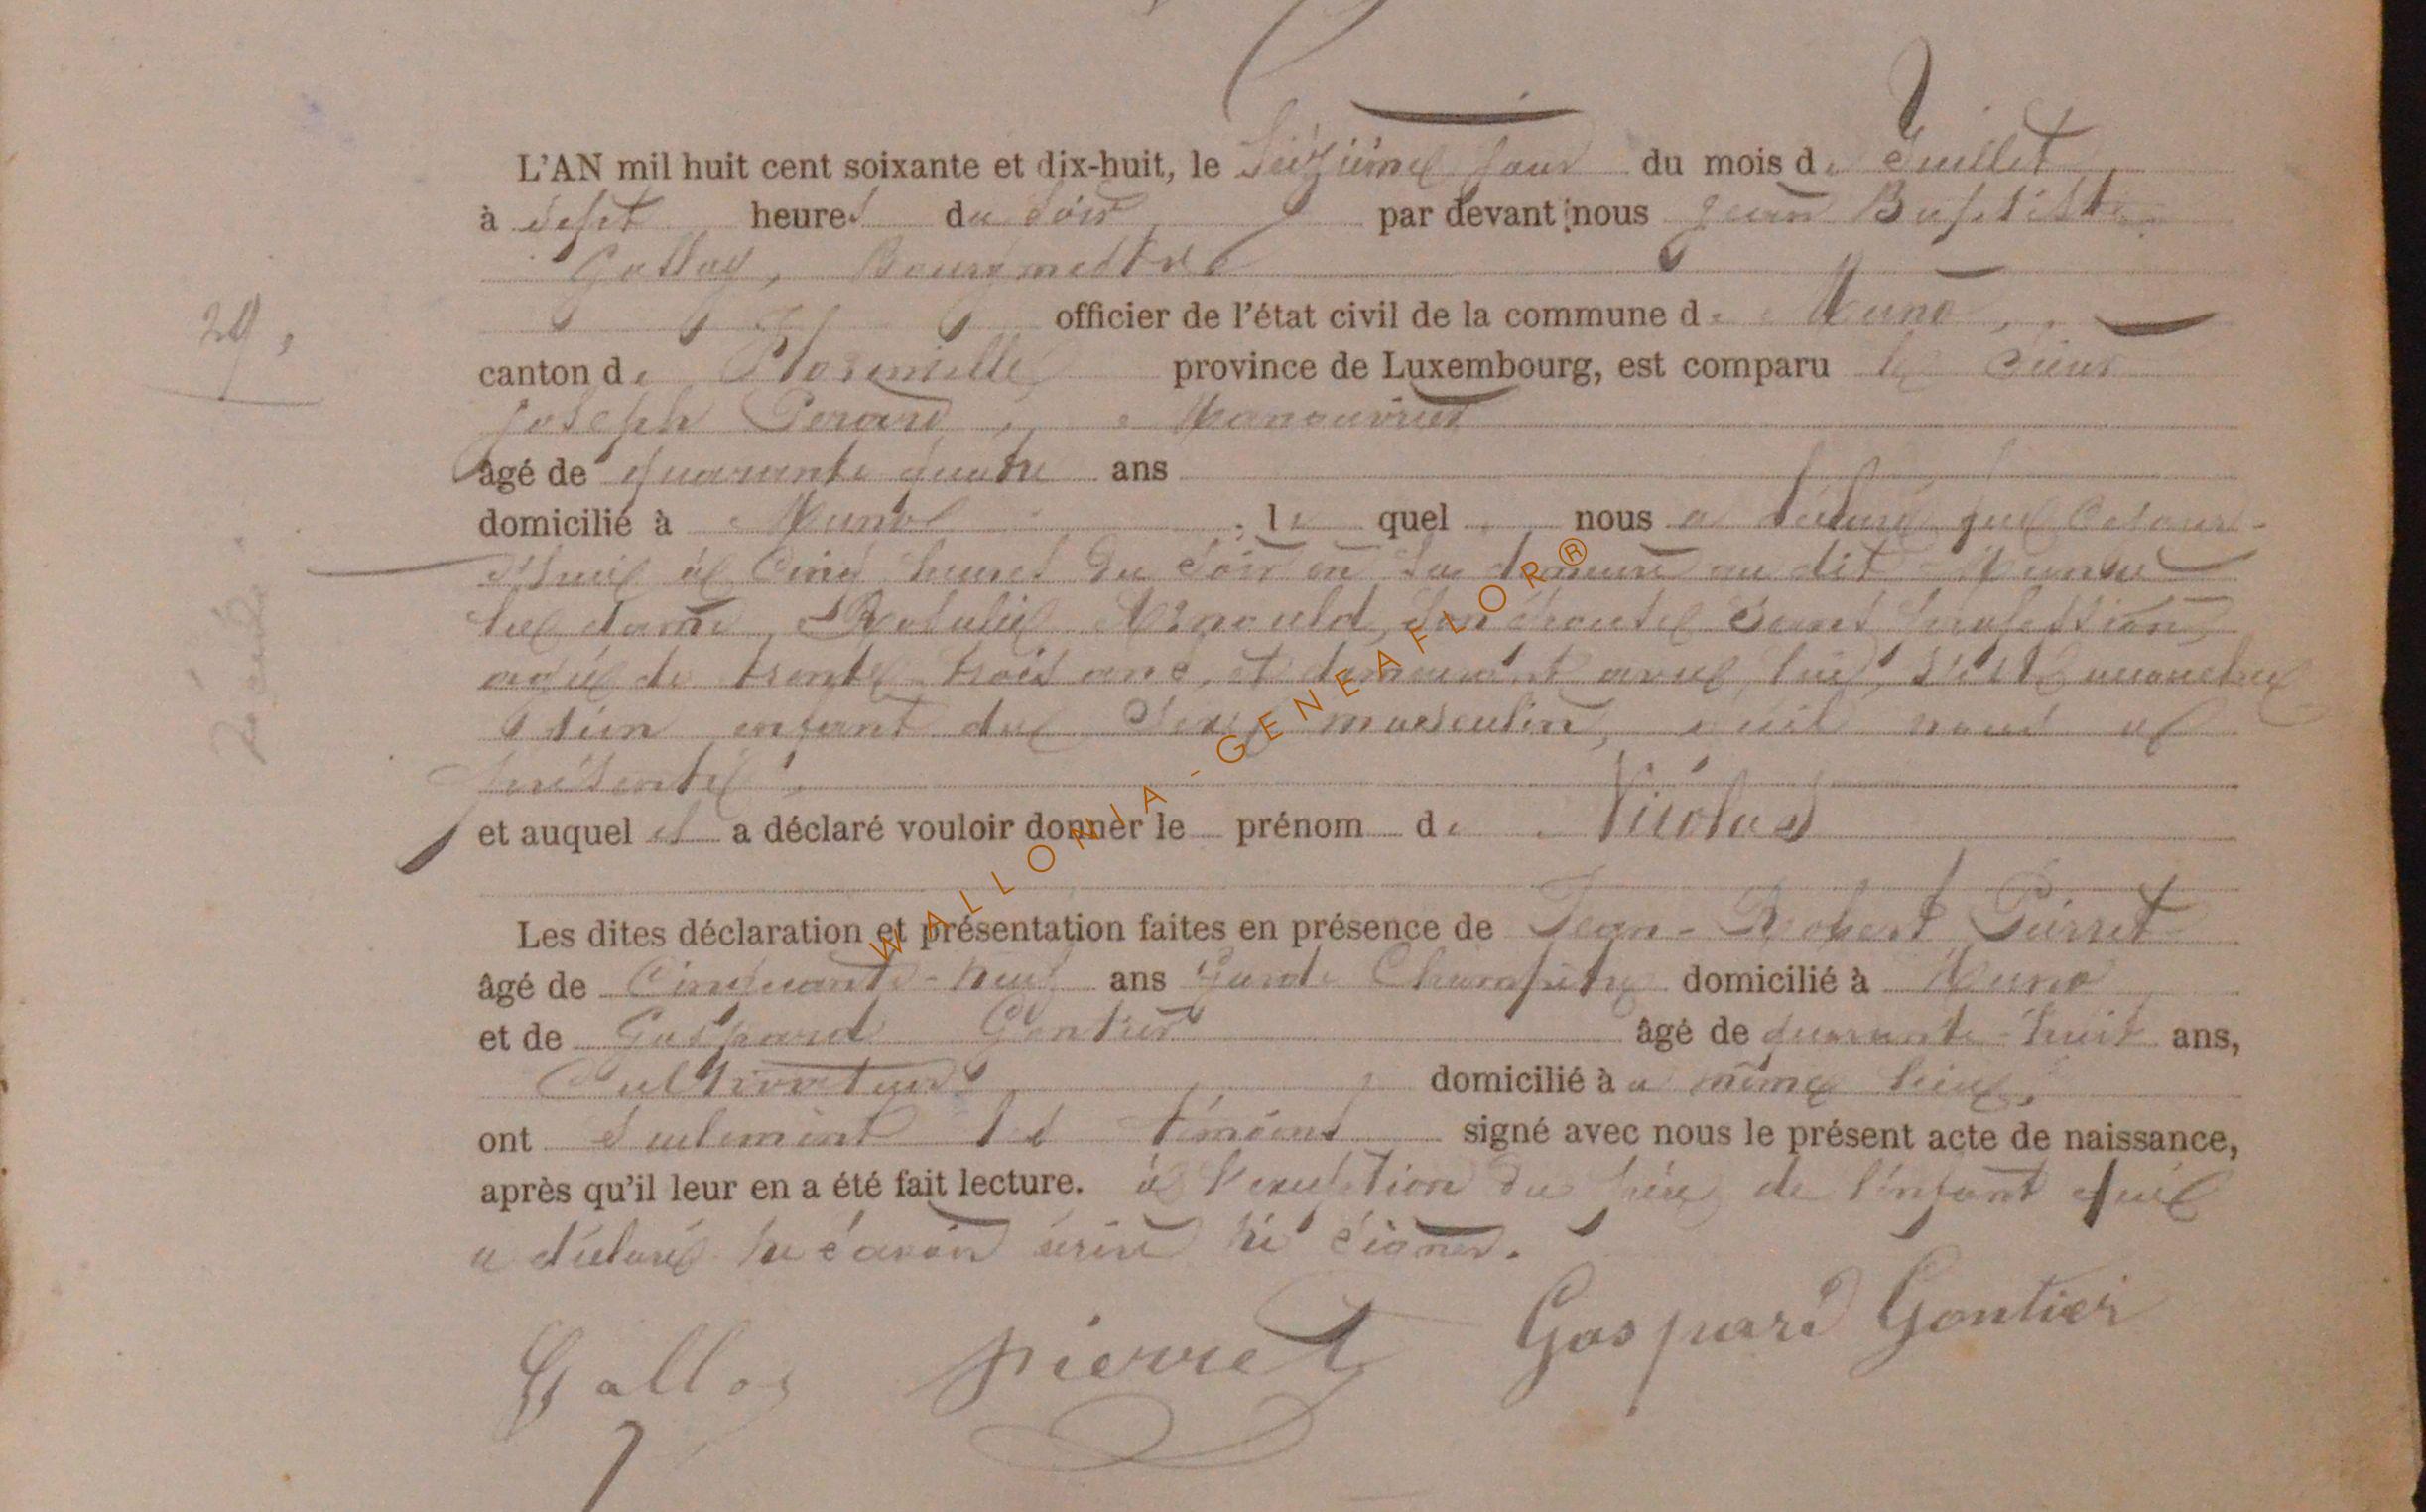 L'AN mil huit cent soixante et dix-huit, le Seizième jour du mois de Juillet
à sept heures du soir par devant nous Jean Baptiste
Galloy, Bourgmestre
officier de l'état civil de la commune de Muno,
29,
canton de Florenville province de Luxembourg, est comparu le Sieur
Joseph Perard, Manouvrier
âgé de quarante quatre ans
domicilié à Muno, le quel nous a déclaré que cejour-
d'hui à Cinq heures du soir en sa demeure au dit Muno
la dame Rosalie Arnould, son épouse sans profession,
agée de trente-trois ans, et demeurant avec lui, s'est accouchée
d'un enfant du Sexe masculin, qu'il nous a
présenté,
et auquel il a déclaré vouloir donner le prénom de Nicolas
Les dites déclaration et présentation faites en présence de Jean-Robert Pierret
âgé de Cinquante-neuf ans Garde Champêtre domicilié à Muno
et de Gaspard Gontier âgé de quarante-huit ans,
Cultivateur domicilié à u même lieu,
ont seulement les témoins signé avec nous le présent acte de naissance,
après qu'il leur en a été fait lecture. à l'exception du père de l'enfant qui
a déclaré ne savoir écrire ni signer.
Galloy Pierret Gaspard Gontier
WALLONIA - GENEAFLOR®